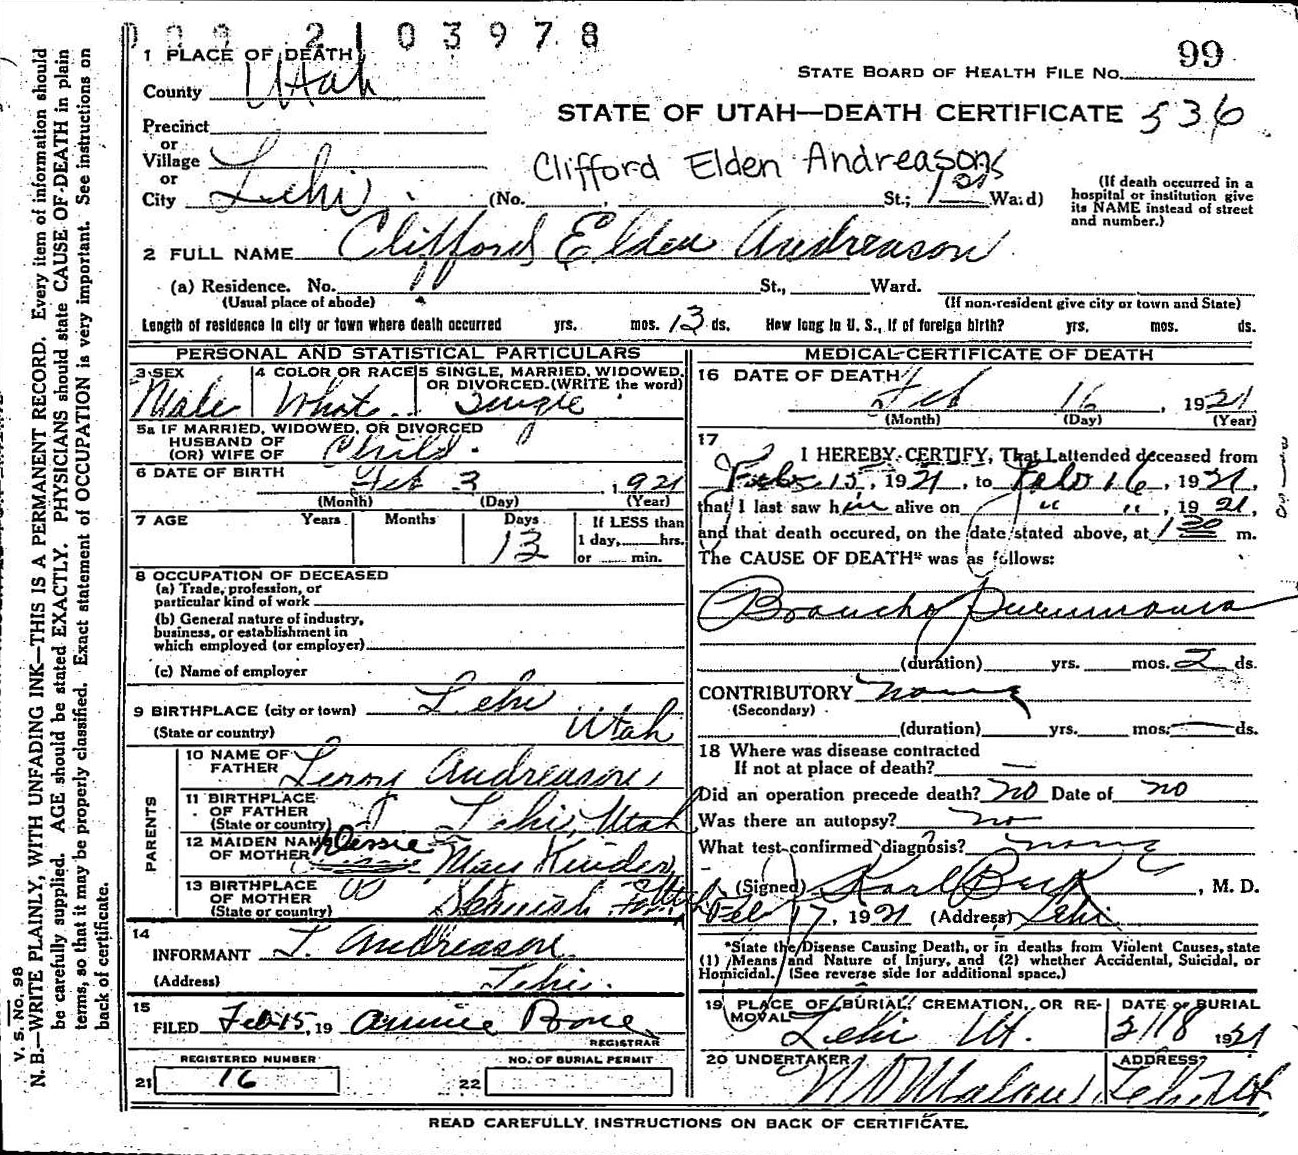 002103978
99
1 PLACE OF DEATH
STATE BOARD OF HEALTH FILE No.
County Utah
STATE OF UTAH—DEATH CERTIFICATE 536
Precinct
or
Village
Clifford Elden Andreasons
or
City Lehi (No. , St.; 1st Ward)
(If death occurred in a hospital or institution give its NAME instead of street and number.)
2 FULL NAME Clifford Elden Andreason
(a) Residence. No. St., Ward.
(Usual place of abode) (If non-resident give city or town and State)
Length of residence in city or town where death occurred yrs. mos. 13 ds. How long in U. S., if of foreign birth? yrs. mos. ds.
PERSONAL AND STATISTICAL PARTICULARS
3 SEX
Male
4 COLOR OR RACE
White
5 SINGLE, MARRIED, WIDOWED, OR DIVORCED. (WRITE the word)
Single
5a IF MARRIED, WIDOWED, OR DIVORCED
HUSBAND OF
(OR) WIFE OF Child.
6 DATE OF BIRTH Feb 3, 1921
(Month) (Day) (Year)
7 AGE Years Months Days If LESS than
13 1 day, hrs.
or min.
8 OCCUPATION OF DECEASED
(a) Trade, profession, or
particular kind of work
(b) General nature of industry,
business, or establishment in
which employed (or employer)
(c) Name of employer
9 BIRTHPLACE (city or town) Lehi
(State or country) Utah
PARENTS
10 NAME OF
FATHER Andreason
11 BIRTHPLACE
OF FATHER
(State or country) Lehi, Utah
12 MAIDEN NAME
OF MOTHER Dessie May Kinder
13 BIRTHPLACE
OF MOTHER
(State or country) Spanish Fork
14
INFORMANT L. Andreason
(Address) Lehi.
15
FILED Feb 15, 19 Annie Bone
REGISTRAR
REGISTERED NUMBER
21 16
NO. OF BURIAL PERMIT
22
MEDICAL CERTIFICATE OF DEATH
16 DATE OF DEATH
Feb 16, 1921
(Month) (Day) (Year)
17
I HEREBY CERTIFY, That I attended deceased from
Feb 15, 1921, to Feb 16, 1921,
that I last saw him alive on " ", 1921,
and that death occured, on the date stated above, at 130 m.
The CAUSE OF DEATH* was as follows:
Broncho Pneumonia
(duration) yrs. mos. 2 ds.
CONTRIBUTORY none
(Secondary)
(duration) yrs. mos. — ds.
18 Where was disease contracted
If not at place of death? —
Did an operation precede death? no Date of no
Was there an autopsy? no
What test confirmed diagnosis? none
(Signed) Karl Beck, M. D.
Feb 17, 1921 (Address) Lehi
*State the Disease Causing Death, or in deaths from Violent Causes, state
(1) Means and Nature of Injury, and (2) whether Accidental, Suicidal, or
Homicidal. (See reverse side for additional space.)
19 PLACE OF BURIAL, CREMATION, OR RE-
MOVAL
Lehi Ut.
DATE OF BURIAL
2/18 1921
20 UNDERTAKER
ADDRESS
Lehi, Ut.
READ CAREFULLY INSTRUCTIONS ON BACK OF CERTIFICATE.
V. S. No. 98
N. B.—WRITE PLAINLY, WITH UNFADING INK—THIS IS A PERMANENT RECORD. Every item of information should
be carefully supplied. AGE should be stated EXACTLY. PHYSICIANS should state CAUSE OF DEATH in plain
terms, so that it may be properly classified. Exact statement of OCCUPATION is very important. See instructions on
back of certificate.